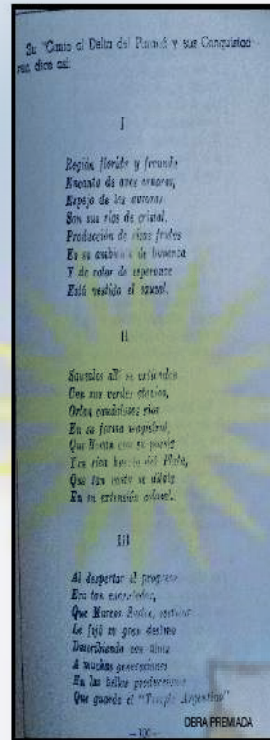 Su "Canto al Delta del Paraná y sus
dice así:
I
Región florida y fecunda
Encanto de aves canoras,
Espejo de las auroras
Son sus ríos de cristal.
Producción de ricos frutos
Es su ambiente de bonanza
Y de color de esperanza
Está vestido el sauzal.
II
Sauzales allí se extienden
Con sus verdes
Orlan caudalosos ríos
En su forma magistral,
Que llevan con su poesía
del Plata,
Que tan vasto se dilata
En su extensión
III
Al despertar el progreso
Era tan
Que Marcos Sastre,
Le fijó su gran destino
Describiendo con
A muchas generaciones
En las bellas producciones
Que guarda el "Tempe Argentino"
— 100 —
OBRA PREMIADA